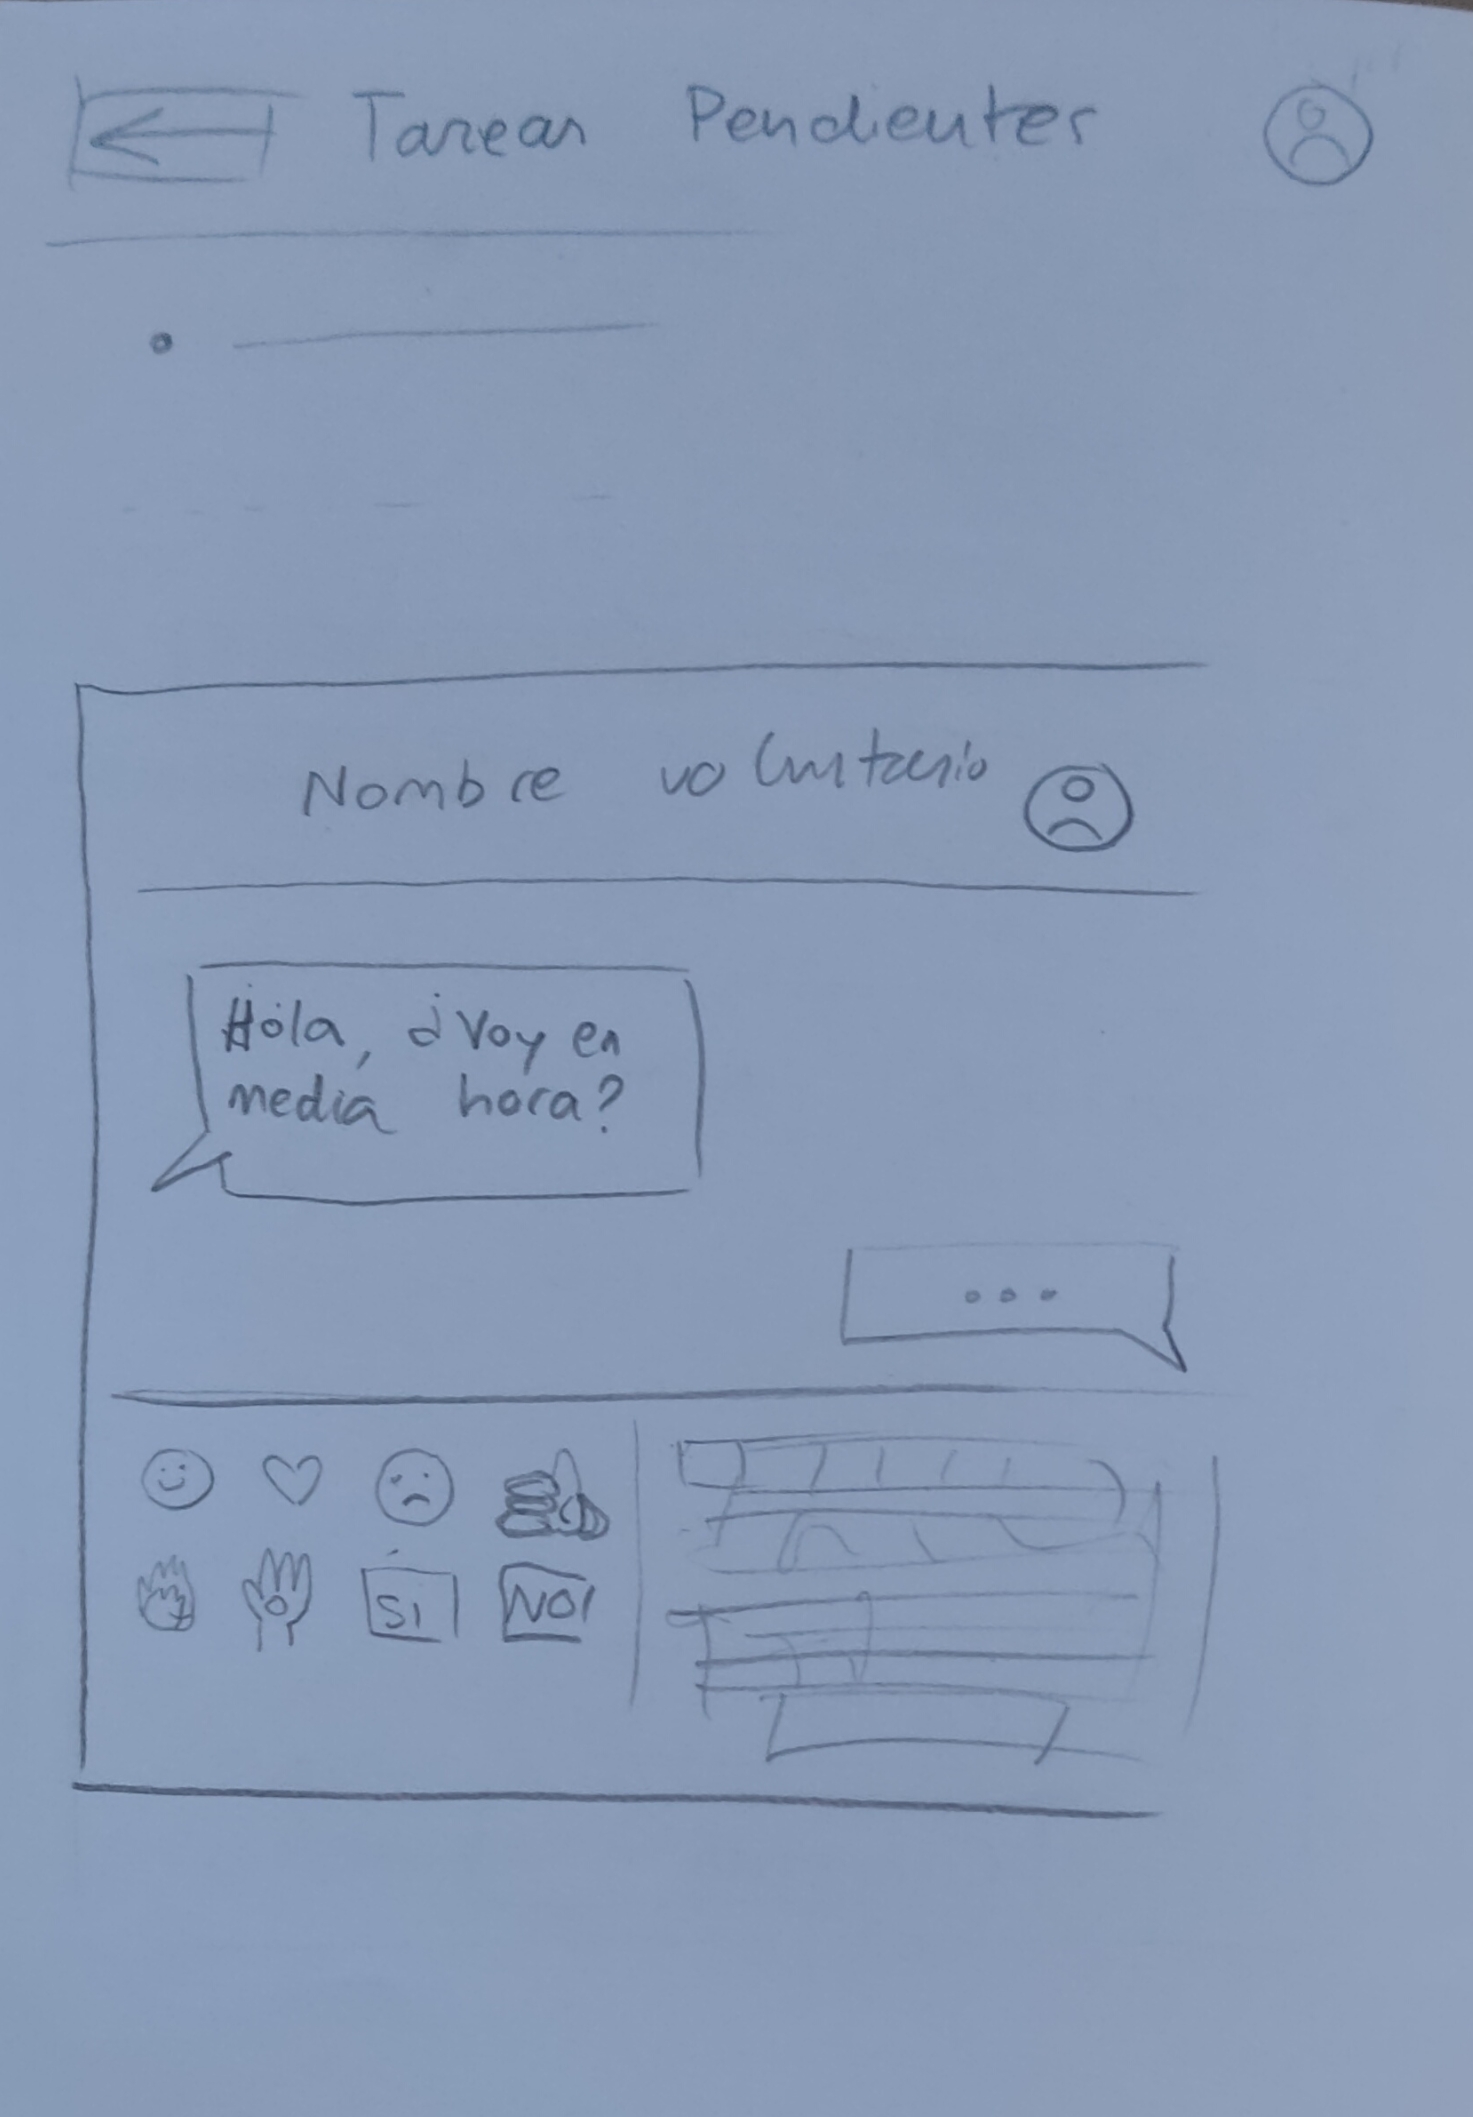 Tareas Pendientes
Nombre voluntario
Hola, ¿Voy en
media hora?
...
SI NO